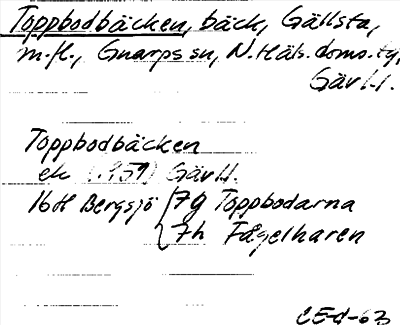 Toppbodbäcken, bäck, Gällsta,
m.fl., Gnarps sn, N. Häls. doms. tg,
Gävl.l.
Toppbodbäcken
ek (1959) Gävl.l.
16H Bergsjö 7g Toppbodarna
7h Fågelharen
CE-d-63